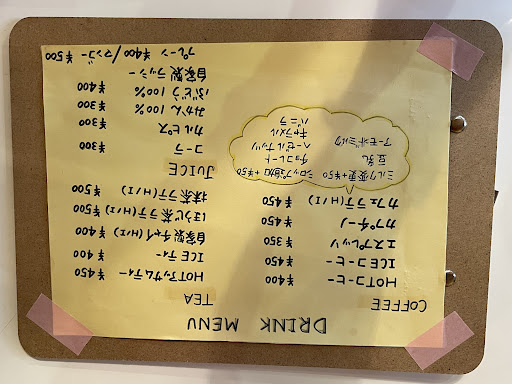 DRINK MENU
COFFEE
HOTコーヒー ¥400
ICEコーヒー ¥450
エスプレッソ ¥350
カプチーノ ¥450
カフェラテ(H/I) ¥450
ミルク変更+¥50
豆乳
アーモンドミルク
シロップ追加+¥50
チョコレート
ヘーゼルナッツ
キャラメル
バニラ
TEA
HOTアッサムティー ¥450
ICEティー ¥400
自家製チャイ(H/I) ¥400
ほうじ茶ラテ(H/I) ¥500
抹茶ラテ(H/I) ¥500
JUICE
コーラ ¥300
カルピス ¥300
みかん100% ¥300
ぶどう100% ¥400
自家製ラッシー
プレーン ¥400/マンゴー ¥500